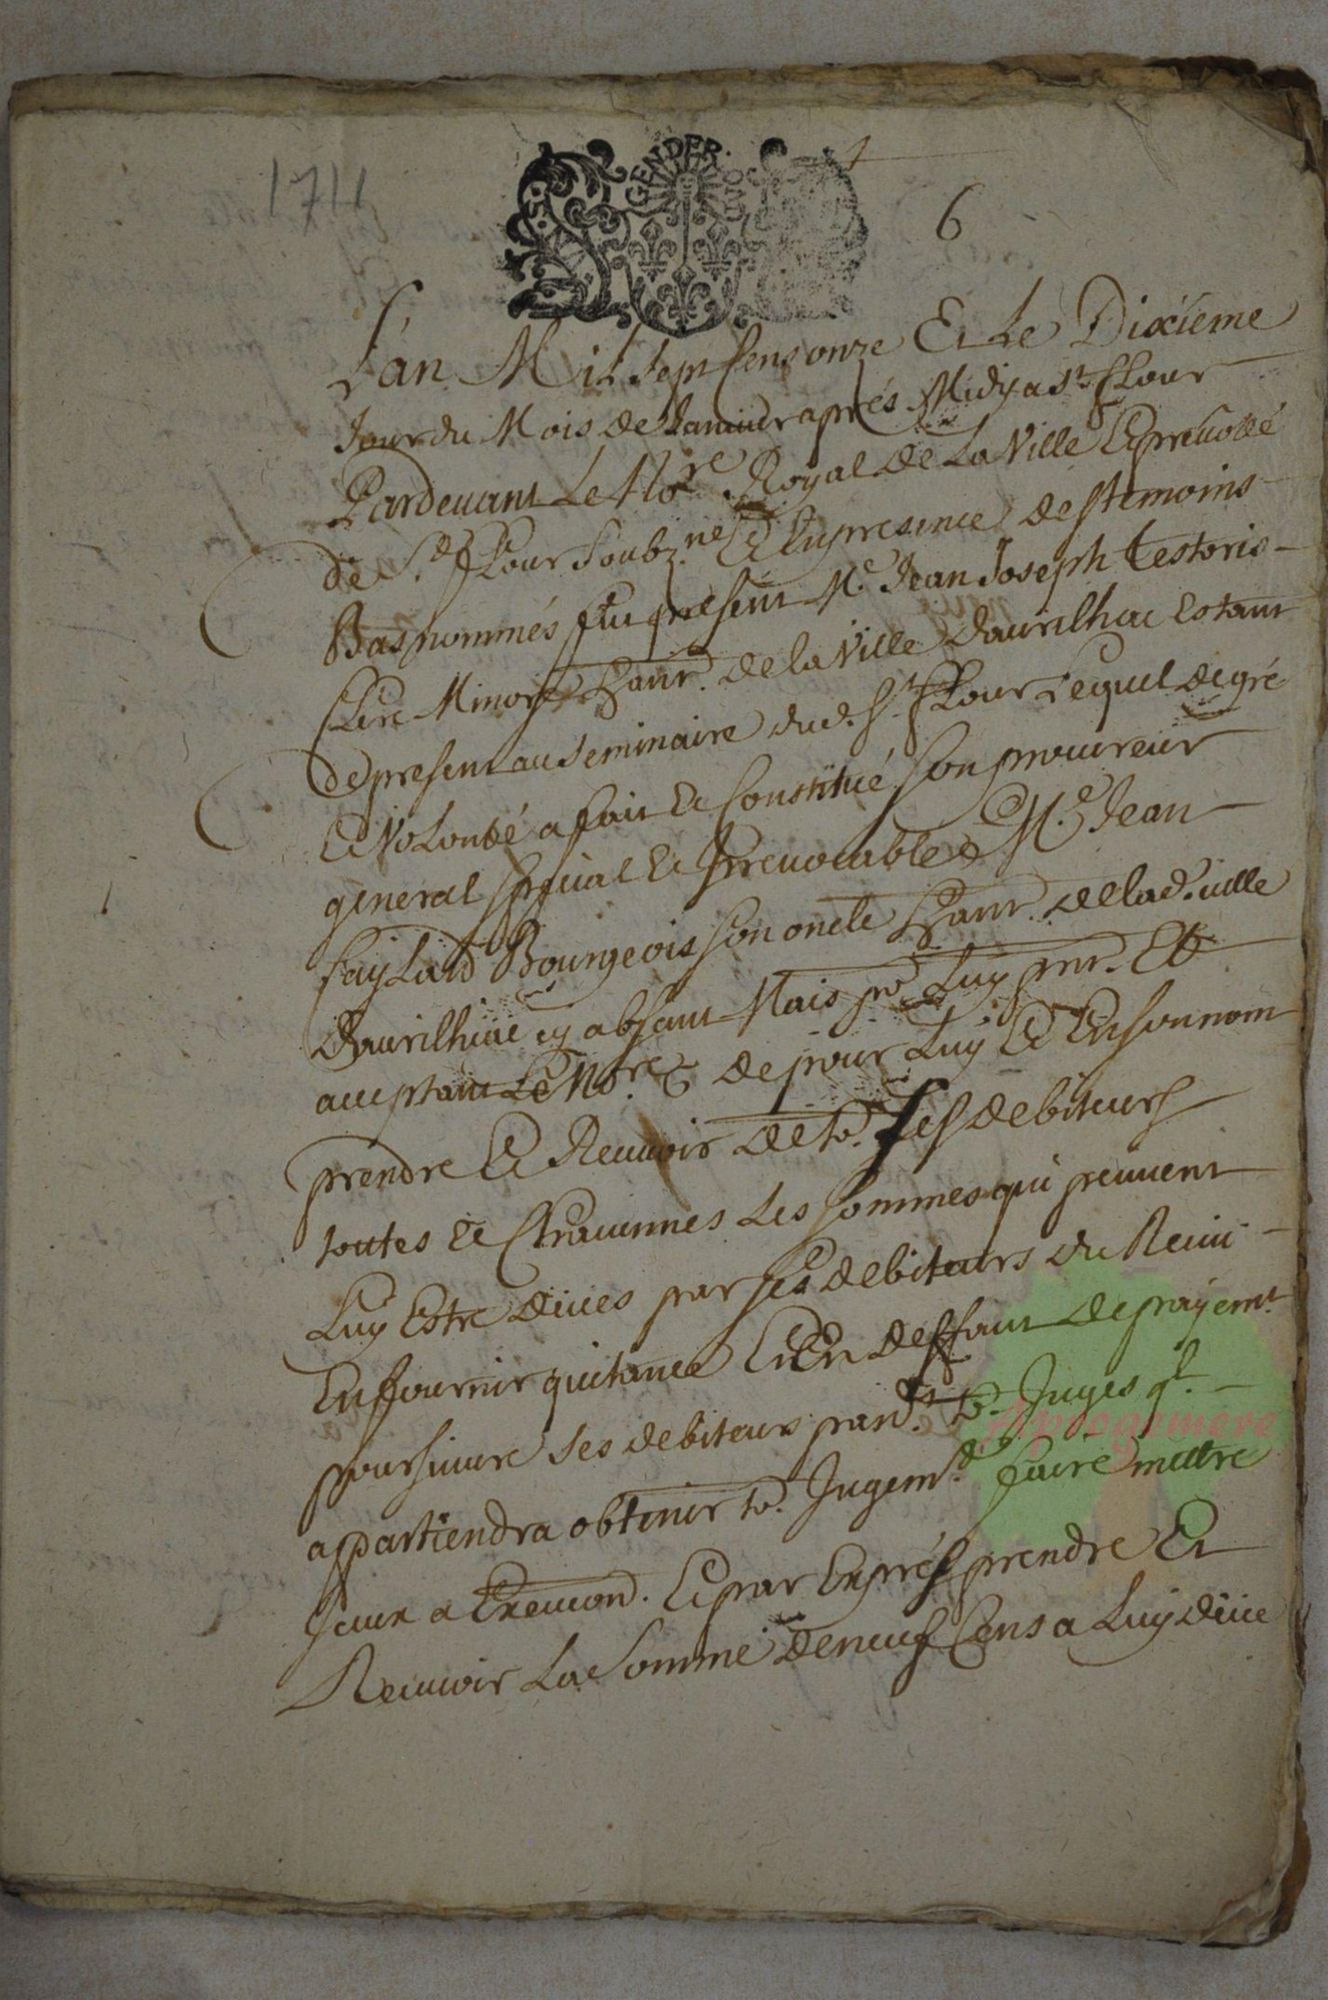 1711
GENDER.
6
L'an Mil sept Cens onze Et Le Dixiéme
Jour du Mois de Januier aprés Midy a St. fLour
Pardeuant Le No.re Royal de La Ville Et preuosté
de S.t fLour soubz.né Et En presence des temoins
Bas nommés fut present M.e Jean Joseph Testoris
Clerc Minoré hant. de la Ville d'aurilhac Estant
de present au Seminaire dud. St. fLour Lequel de gré
Et VoLonté a fait Et Constitué son procureur
general special Et Irreuocable M.e Jean
Caylard Bourgeois son oncle hant. de lad. uille
d'aurilhac cy absant Mais po.r Luy pnt. Et
acceptant Le No.re de pour Luy Et En son nom
prendre Et Receuoir de to. ses debiteurs
toutes Et Chacunnes Les sommes qui peuuent
Luy Estre düës par ses debiteurs du Receu
En fournir quitance Et En deffaut de payem.t
poursuiure ses debiteurs pard.t to. Juges q.l
appartiendra obtenir to. Jugem.t faire mettre
Iceux a Execuon. Et par Exprés prendre Et
Receuoir La somme de neuf Cens a Luy düe
Apogemere